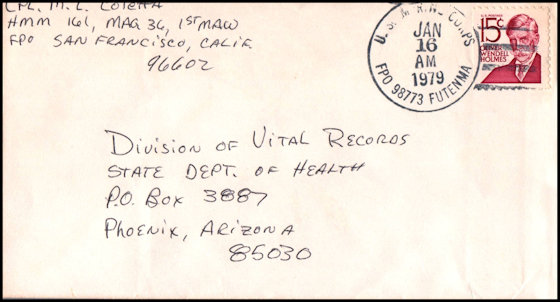 CPL. M. L.
HMM 161, MAG 36, 1ST MAW
FPO SAN FRANCISCO, CALIF.
96602
U.S. MARINE CORPS
JAN
16
AM
1979
FPO 98773 FUTENMA
15¢
OLIVER
WENDELL
HOLMES
DIVISION OF VITAL RECORDS
STATE DEPT. OF HEALTH
P.O. BOX 3887
PHOENIX, ARIZONA
85030